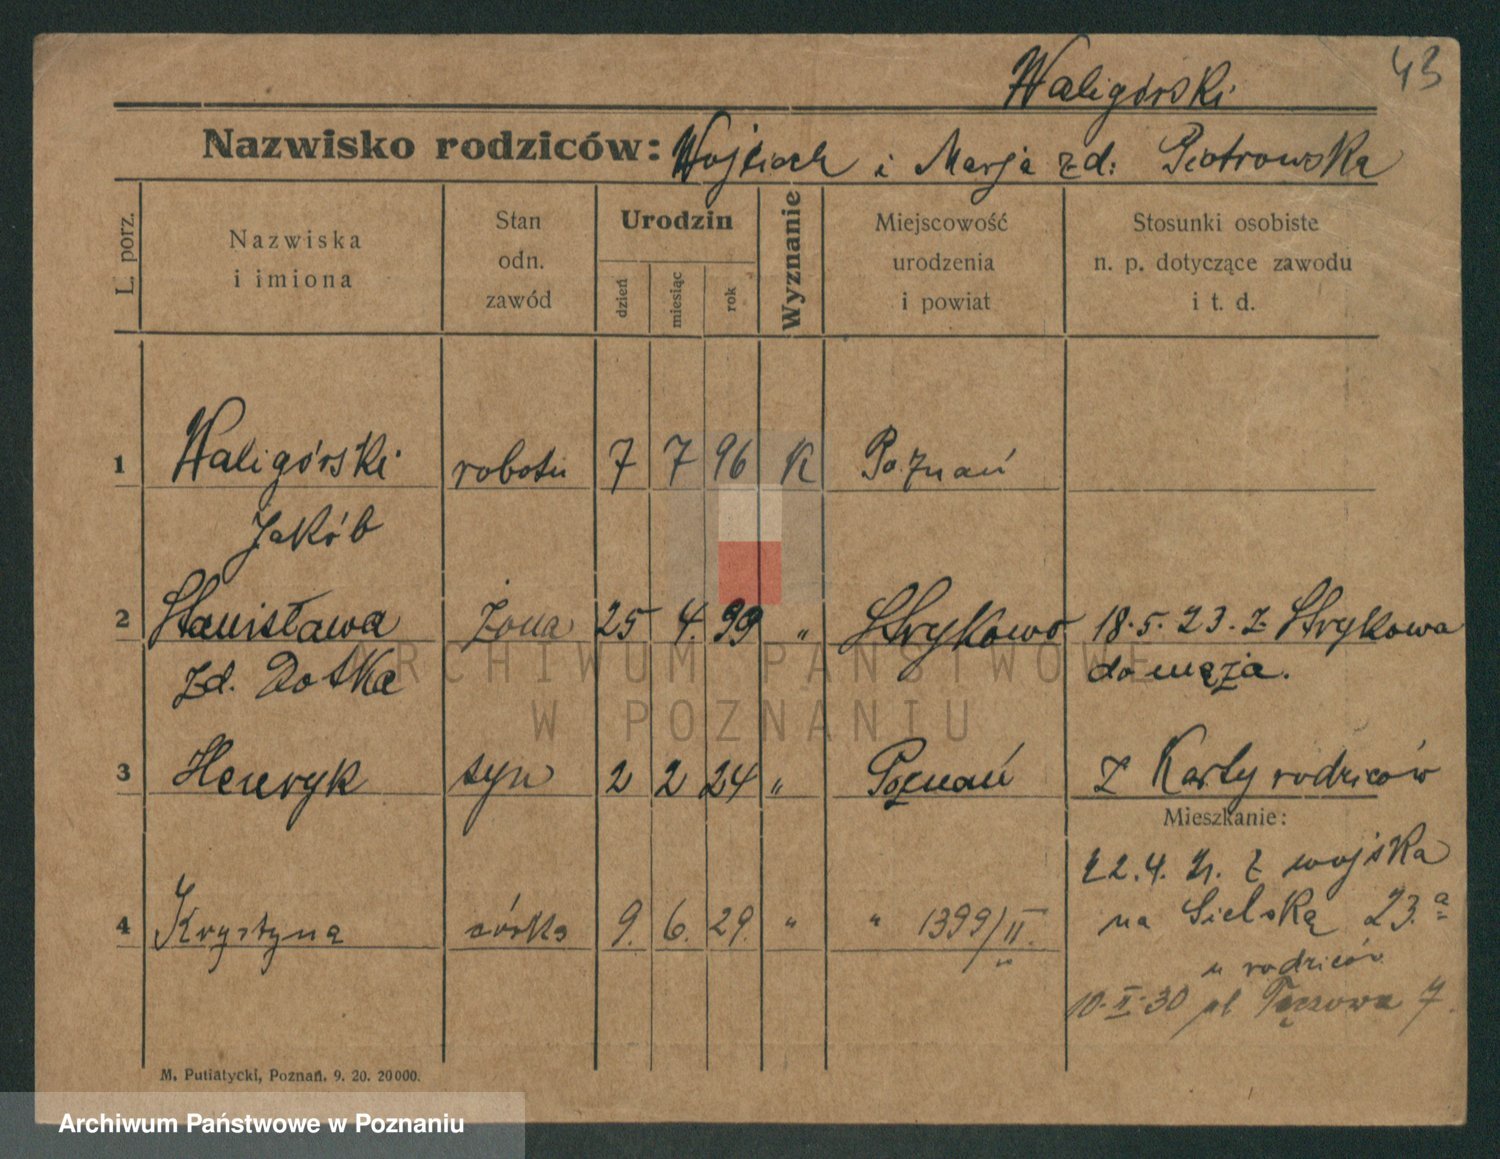 Waligórski 43
Nazwisko rodziców: Wojciech i Marja zd: Piotrowska
L. porz.
Nazwiska
i imiona
Stan
odn.
zawód
Urodzin
dzień
miesiąc
rok
Wyznanie
Miejscowość
urodzenia
i powiat
Stosunki osobiste
n. p. dotyczące zawodu
i t. d.
1 Waligórski robotn 7 7 96 K Poznań
Jakób
2 Stanisława żona 25 4. 99 „ Strykowo 18.5.23. z Strykowa
zd. Dotka do męża.
3 Henryk syn 2 2 24 „ Poznań z Karty rodziców
Mieszkanie:
22.4. 21. z wojska
4 Krystyna córka 9. 6. 29. „ „ 1399/II. na Sielską 23.a
u rodziców
10.II.30 Tęczowa 7.
M. Putiatycki, Poznań, 9. 20. 20000.
ARCHIWUM PAŃSTWOWE
W POZNANIU
Archiwum Państwowe w Poznaniu